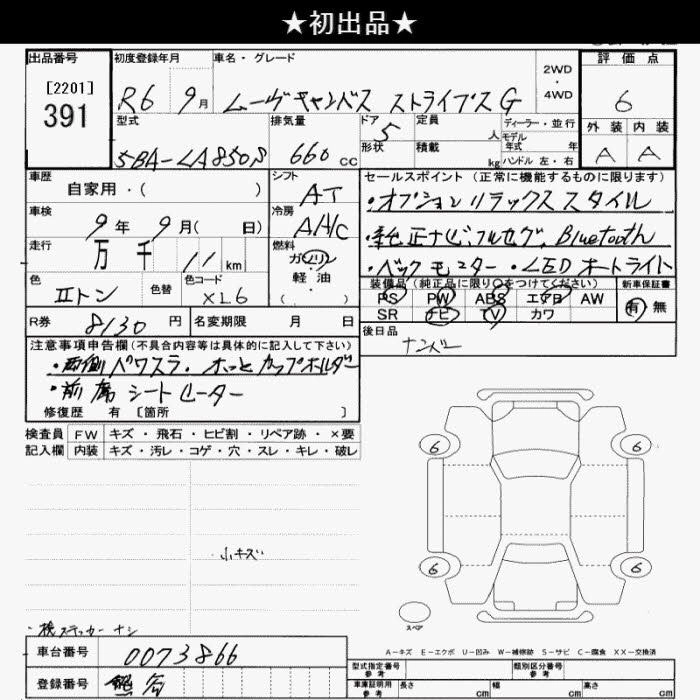 ★初出品★
出品番号 初度登録年月 車名・グレード 2WD・4WD 評価点
[2201] 391 R6 9月 ムーヴキャンバス ストライプス G 6
型式 排気量 ドア 定員 ディーラー・並行 外装 内装
5BA-LA850S 660cc 5 人 モデル年式 年 A A
形状 積載 kg ハンドル 左・右
車歴 シフト セールスポイント(正常に機能するものに限ります)
自家用・( ) AT ・オプション リラックススタイル
車検 冷房
9年 9月( 日) AH/C ・純正ナビ,フルセグ,Bluetooth
走行 燃料
万 千 11km ガソリン・軽油・( ) ・バックモニター ・LEDオートライト
色 色替 色コード 装備品(純正品に限り○をつけてください) 新車保証書
IIトン XL6 PS PW ABS エアB AW 有・無
SR ナビ TV カワ
R券 8130円 名変期限 月 日 後日品
ナンバー
注意事項申告欄(不具合内容等は具体的に記入して下さい)
・両側パワスラ. ホッとカップホルダー
・前席シートヒーター
修復歴 有 [箇所 ]
検査員 FW キズ・飛石・ヒビ割・リペア跡・×要
記入欄 内装 キズ・汚レ・コゲ・穴・スレ・キレ・破レ
6 6
小キズ
6 6
スペア
・検ステッカーナシ
A-キズ E-エクボ U-凹み W-補修跡 S-サビ C-腐食 XX-交換済
車台番号 0073866 型式指定番号 参考 類別区分番号 参考
登録番号 熊谷 車庫証明用 参考 長さ cm 幅 cm 高さ cm